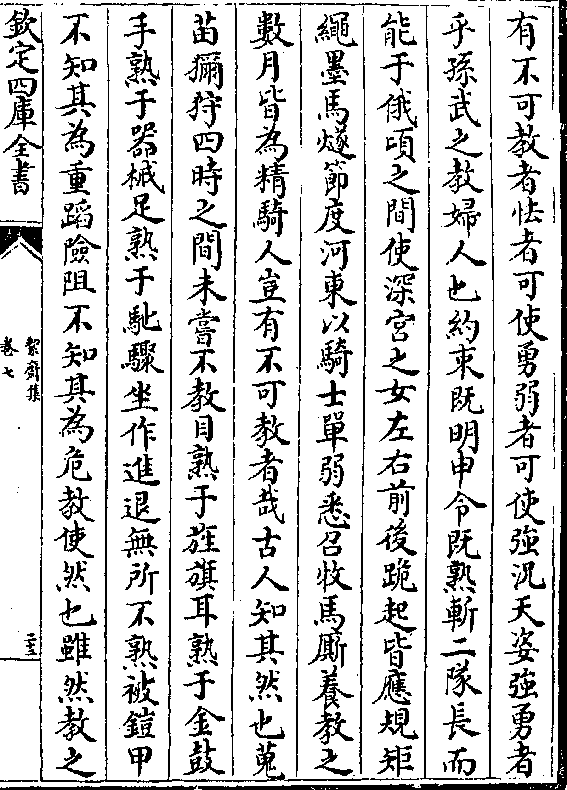 有不可教者怯者可使勇弱者可使強況天姿強勇者
乎孫武之教婦人也約束既明申令既熟斬二隊長而
能于俄頃之間使深宮之女左右前後跪起皆應規矩
繩墨馬燧節度河東以騎士單弱悉召牧馬厮養教之
數月皆為精騎人豈有不可教者哉古人知其然也蒐
苗獮狩四時之間未嘗不教目熟于旌旗耳熟于金鼓
手熟于器械足熟于馳驟坐作進退無所不熟被鎧甲
不知其為重蹈險阻不知其為危教使然也雖然教之
欽定四庫全書
絜齋集
卷七
二十三